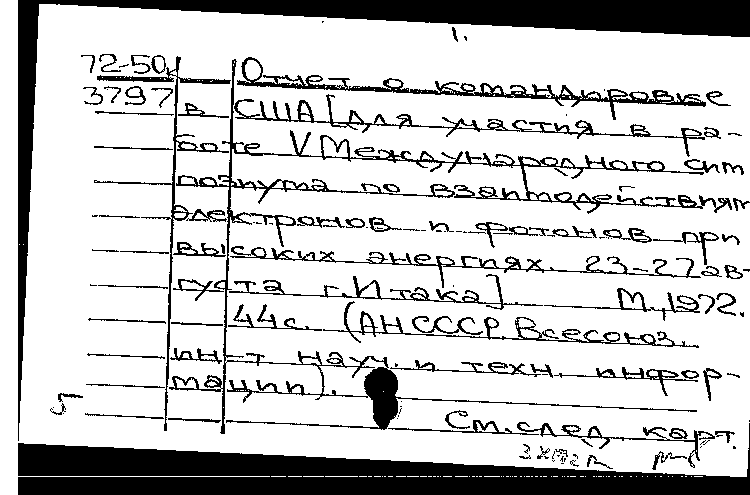 1.
72-50к Отчет о командировке
3797 в США [для участия в ра-
боте V Международного сим
позиума по взаимодействиям
электронов и фотонов при
высоких энергиях. 23-27 ав-
густа г. Итака]. М., 1972.
44с. (АН СССР. Всесоюз.
ин-т науч. и техн. инфор-
мации).
5
См. след. карт.